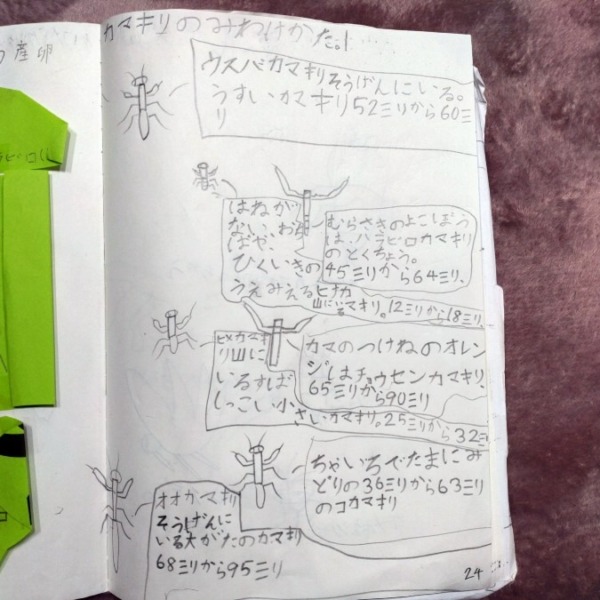 産卵
カマキリのみわけかた。!
ウスバカマキリそうげんにいる。
うすいカマキリ52ミリから60ミ
リ
はねが
ない、お
ばや、
ひくいきの
うえみえるヒナカ
山にいるマキリ。12ミリから18ミリ、
むらさきのよこぼう
は、ハラビロカマキリ
のとくちょう。
45ミリから64ミリ、
ヒメカマキ
リ山に
いるすば
しっこい小
さいカマキリ。25ミリから32ミリ
カマのつけねのオレン
ジはチョウセンカマキリ、
65ミリから90ミリ
ちゃいろでたまにみ
どりの36ミリから63ミリ
のコカマキリ
オオカマキリ
そうげんに
いる大がたのカマキリ
68ミリから95ミリ
24